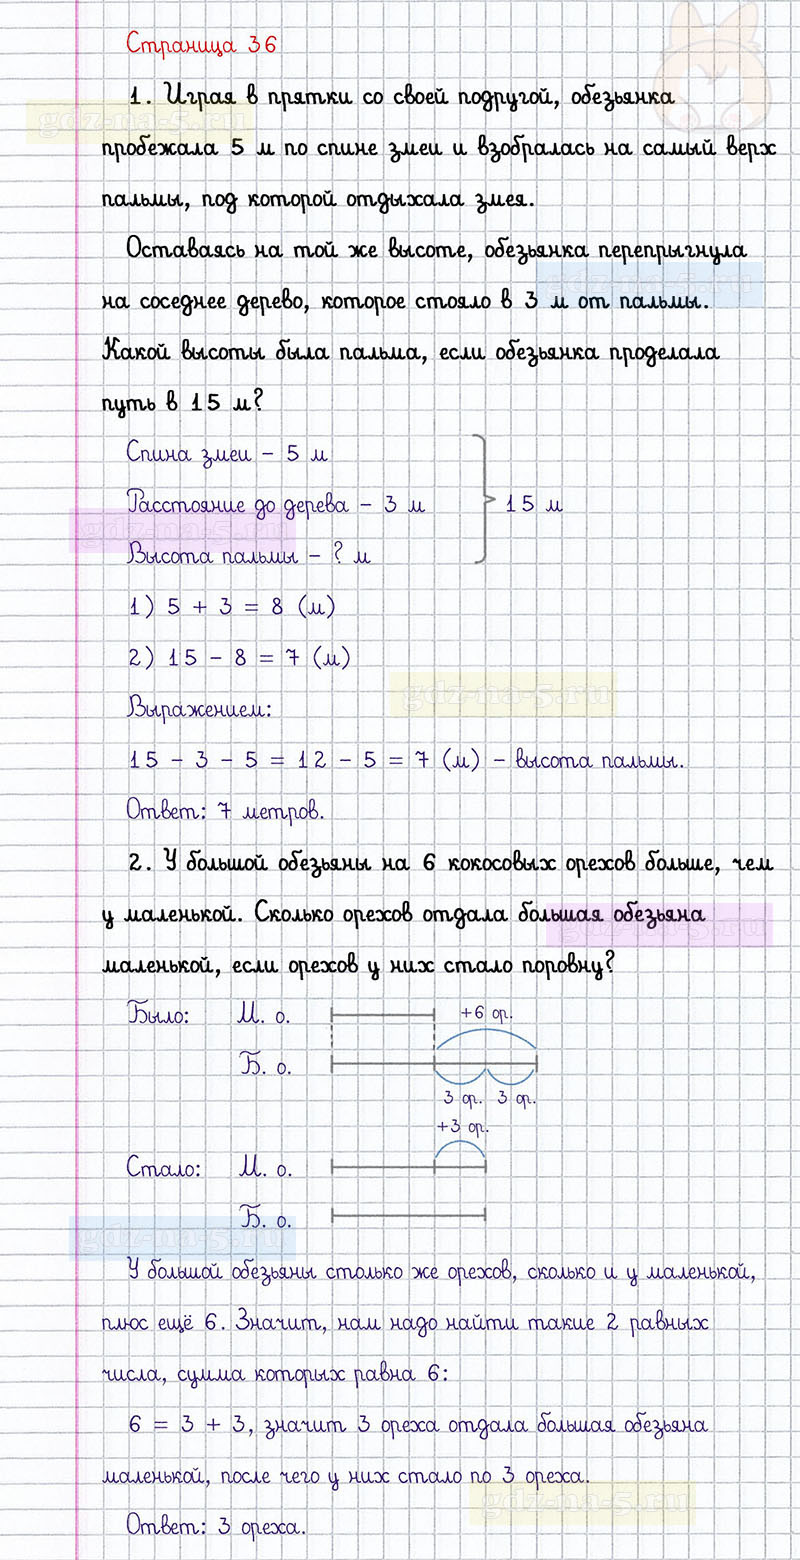 Страница 36
1. Играя в прятки со своей подругой, обезьянка
gdz-na-5.ru
пробежала 5 м по спине змеи и взобралась на самый верх
пальмы, под которой отдыхала змея.
Оставаясь на той же высоте, обезьянка перепрыгнула
gdz-na-5.ru
на соседнее дерево, которое стояло в 3 м от пальмы.
Какой высоты была пальма, если обезьянка проделала
путь в 15 м?
Спина змеи – 5 м
Расстояние до дерева – 3 м
15 м
gdz-na-5.ru
Высота пальмы – ? м
1) 5 + 3 = 8 (м)
2) 15 – 8 = 7 (м)
gdz-na-5.ru
Выражением:
15 – 3 – 5 = 12 – 5 = 7 (м) – высота пальмы.
Ответ: 7 метров.
2. У большой обезьяны на 6 кокосовых орехов больше, чем
у маленькой. Сколько орехов отдала большая обезьяна
gdz-na-5.ru
маленькой, если орехов у них стало поровну?
Было: М. о. +6 ор.
Б. о.
3 ор. 3 ор.
+3 ор.
Стало: М. о.
Б. о.
gdz-na-5.ru
У большой обезьяны столько же орехов, сколько и у маленькой,
плюс ещё 6. Значит, нам надо найти такие 2 равных
числа, сумма которых равна 6:
6 = 3 + 3, значит 3 ореха отдала большая обезьяна
маленькой, после чего у них стало по 3 ореха.
gdz-na-5.ru
Ответ: 3 ореха.